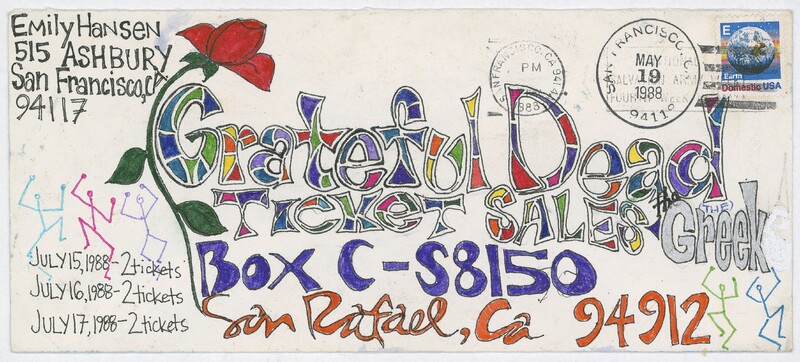 Emily Hansen
515 ASHBURY
San Francisco, CA
94117
SAN FRANCISCO, CA 941
PM
1988
SAN FRANCISCO, C
MAY
19
1988
94119
SALVATION ARMY
FOURTH WEEK
E
Earth
Domestic USA
Grateful Dead
TICKET SALES
the
(THE)
Greek
BOX C-S8150
San Rafael, Ca 94912
JULY 15, 1988-2 tickets
JULY 16, 1988-2 tickets
JULY 17, 1988-2 tickets